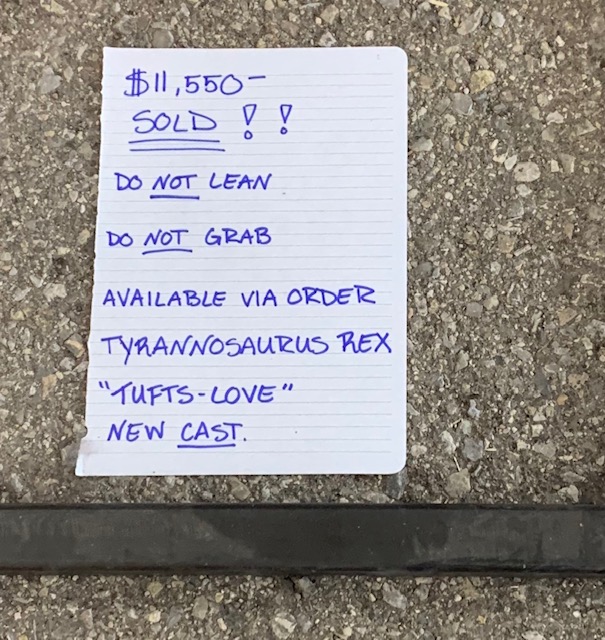 $11,550-
SOLD !!
DO NOT LEAN
DO NOT GRAB
AVAILABLE VIA ORDER
TYRANNOSAURUS REX
"TUFTS-LOVE"
NEW CAST.